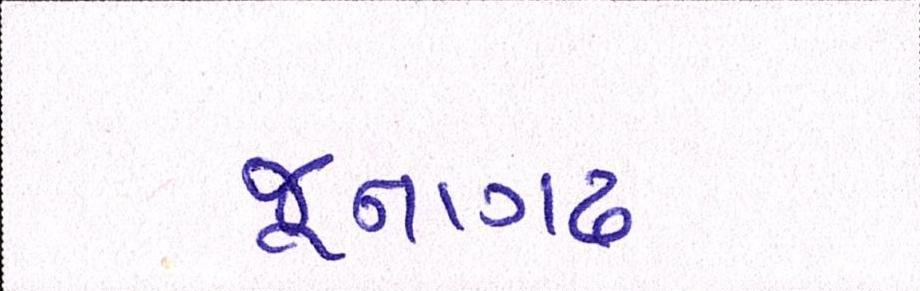 જૂનાગઢ